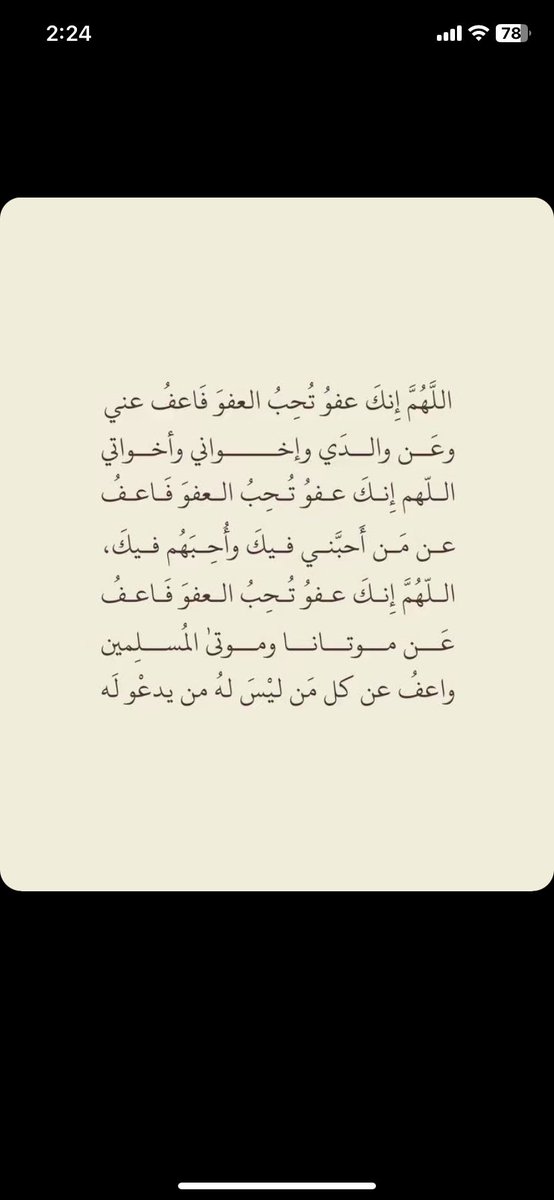 2:24
78
اللَّهُمَّ إِنكَ عفوُ تُحِبُ العفوَ فَاعفُ عني
وعَـن والـدَي وإخـــواني وأخـواتي
اللّهم إِنكَ عفوُ تُحِبُ العفوَ فَاعفُ
عن مَن أَحبَّني فيكَ وأُحِبَهُم فيكَ،
اللّهُمَّ إِنكَ عفوُ تُحِبُ العفوَ فَاعفُ
عَـن مـوتـانـا ومـوتىٰ المُسـلِمين
واعفُ عن كل مَن ليْسَ لهُ من يدعْو لَه